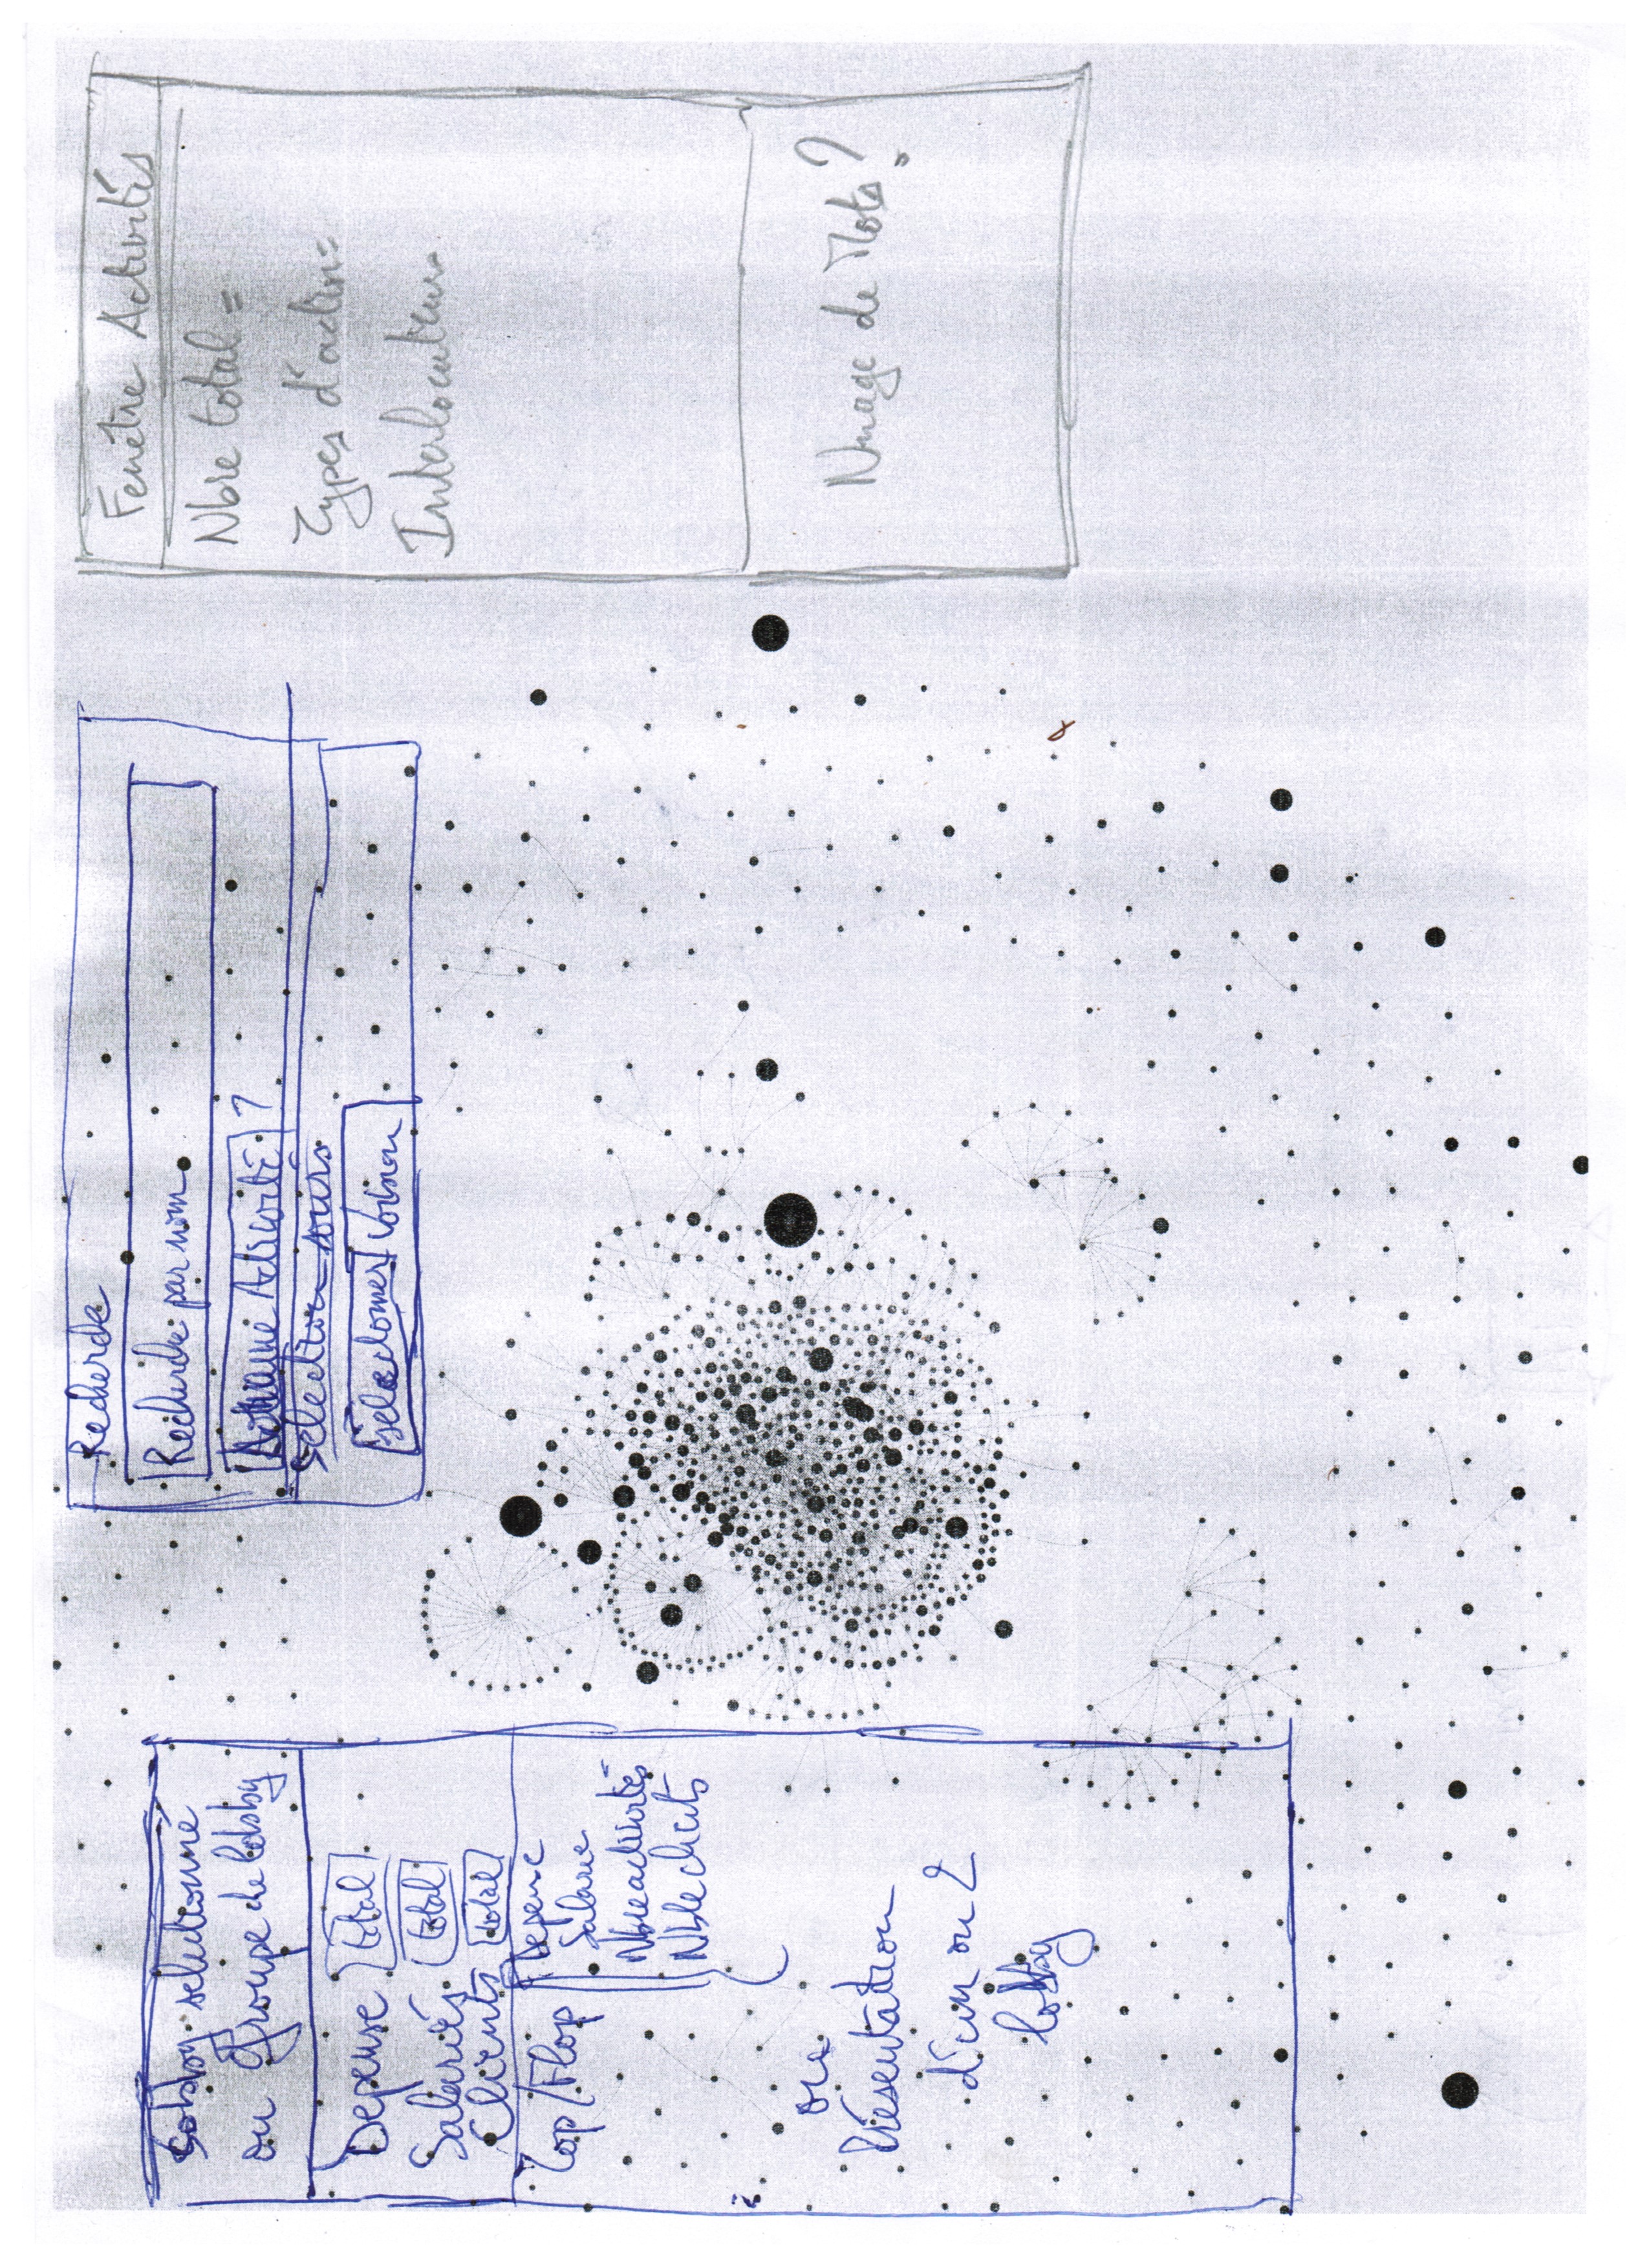 Lobby selectionné
ou Groupe de lobby
Depense total
Salariés total
Clients total
Top/Flop
Depense
Salarie
Nbre activités
Nbre clients
ou
Présentation
d'un ou 2
lobby
Recherche
Recherche par nom
Activité ?
Selection souris
selectionner voisin
Fenêtre Activités
Nbre total =
Types d'action=
Interlocuteur=
Nuage de Mots ?